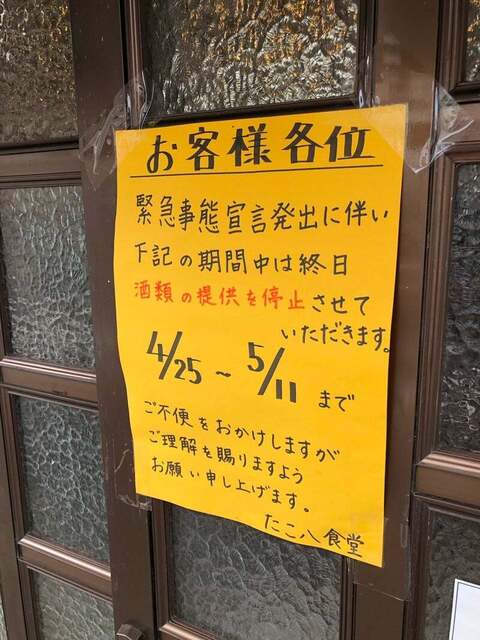 お客様各位
緊急事態宣言発出に伴い
下記の期間中は終日
酒類の提供を停止させて
いただきます。
4/25～5/11まで
ご不便をおかけしますが
ご理解を賜りますよう
お願い申し上げます。
たこ八食堂